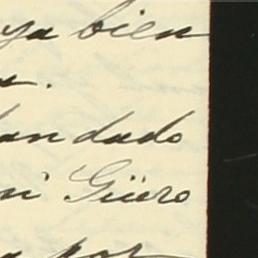 ya bien
andado
mi Güero
por